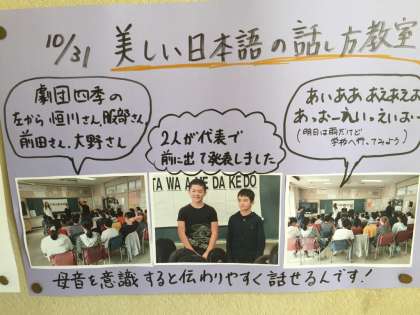 10/31 美しい日本語の話し方教室
劇団四季の
左から恒川さん、服部さん
前田さん、大野さん
2人が代表で
前に出て発表しました
あいああ あえあえお
あっおーれいっえいおー
(明日は雨だけど
学校へ行ってみよう)
TA WA A ME DA KEDO
母音を意識すると伝わりやすく話せるんです!